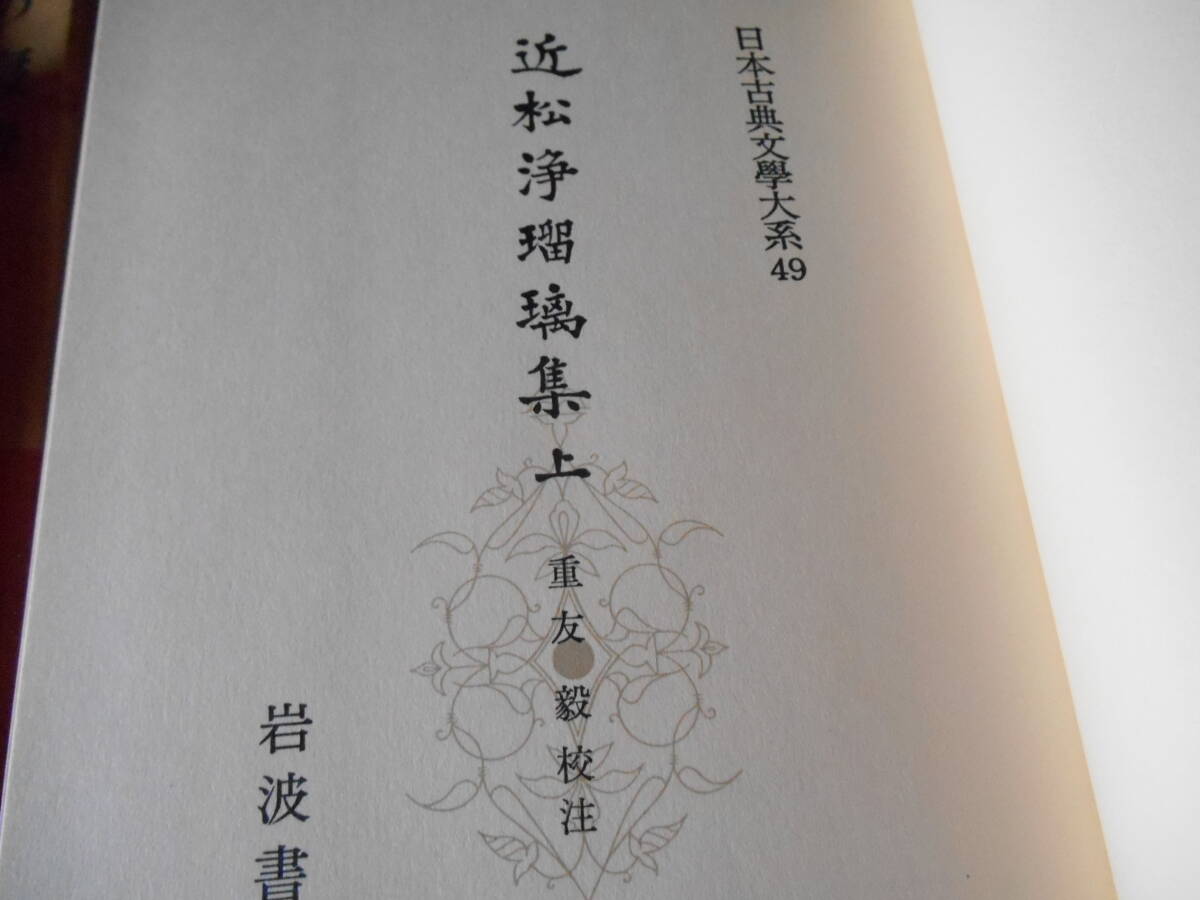 日本古典文學大系49
近松浄瑠璃集上
重友毅校注
岩波書